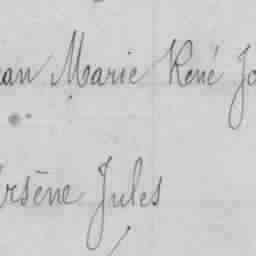 ean Marie René Jo
rsène Jules